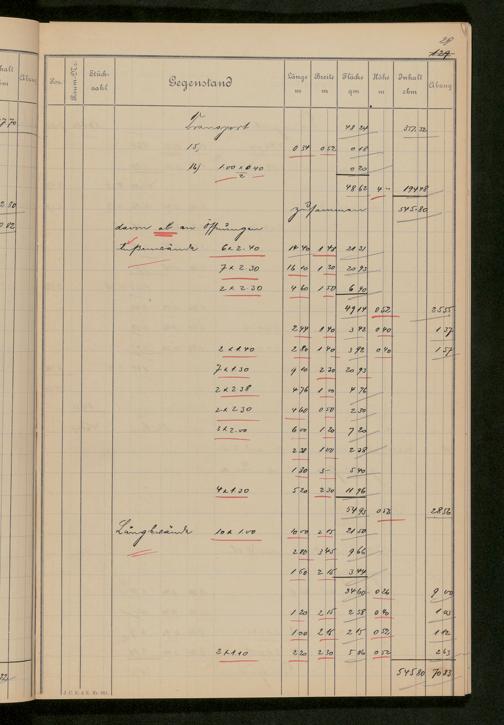 28
127
Pos. Raum-Nr. Stückzahl Gegenstand Länge m Breite m Fläche qm Höhe m Inhalt cbm Abzug
Transport 48 24 351.32
15) 0 34 0 52 0 18
16) 1.00 x 0.40 / 2 0 20
48 62 4 - 194 48
zusammen 545.80
davon ab an Öffnungen
6 x 2.40 14 40 1 48 21 31
7 x 2.30 16 10 1 30 20 93
2 x 2.30 4 60 1 50 6 90
49 14 0 52 25 55
2 44 1 40 3 42 0 40 1 37
2 x 1.40 2 80 1 40 3 92 0 40 1 57
7 x 1.30 9 10 2 30 20 93
2 x 2.38 4 76 1 00 4 76
2 x 2.30 4 60 0 50 2 30
3 x 2.00 6 00 1 20 7 20
2 38 1 00 2 38
1 80 3 - 5 40
4 x 1.30 5 20 2 30 11 96
54 93 0 52 28 56
Längswände 10 x 1.00 10 00 2 15 21 50
2 80 3 45 9 66
1 60 2 15 3 44
34 60 0 26 9 00
1 20 2 15 2 58 0 40 1 03
1 00 2 15 2 15 0 52 1 12
2 x 1.10 2 20 2 30 5 06 0 52 2 63
545 80 70 83